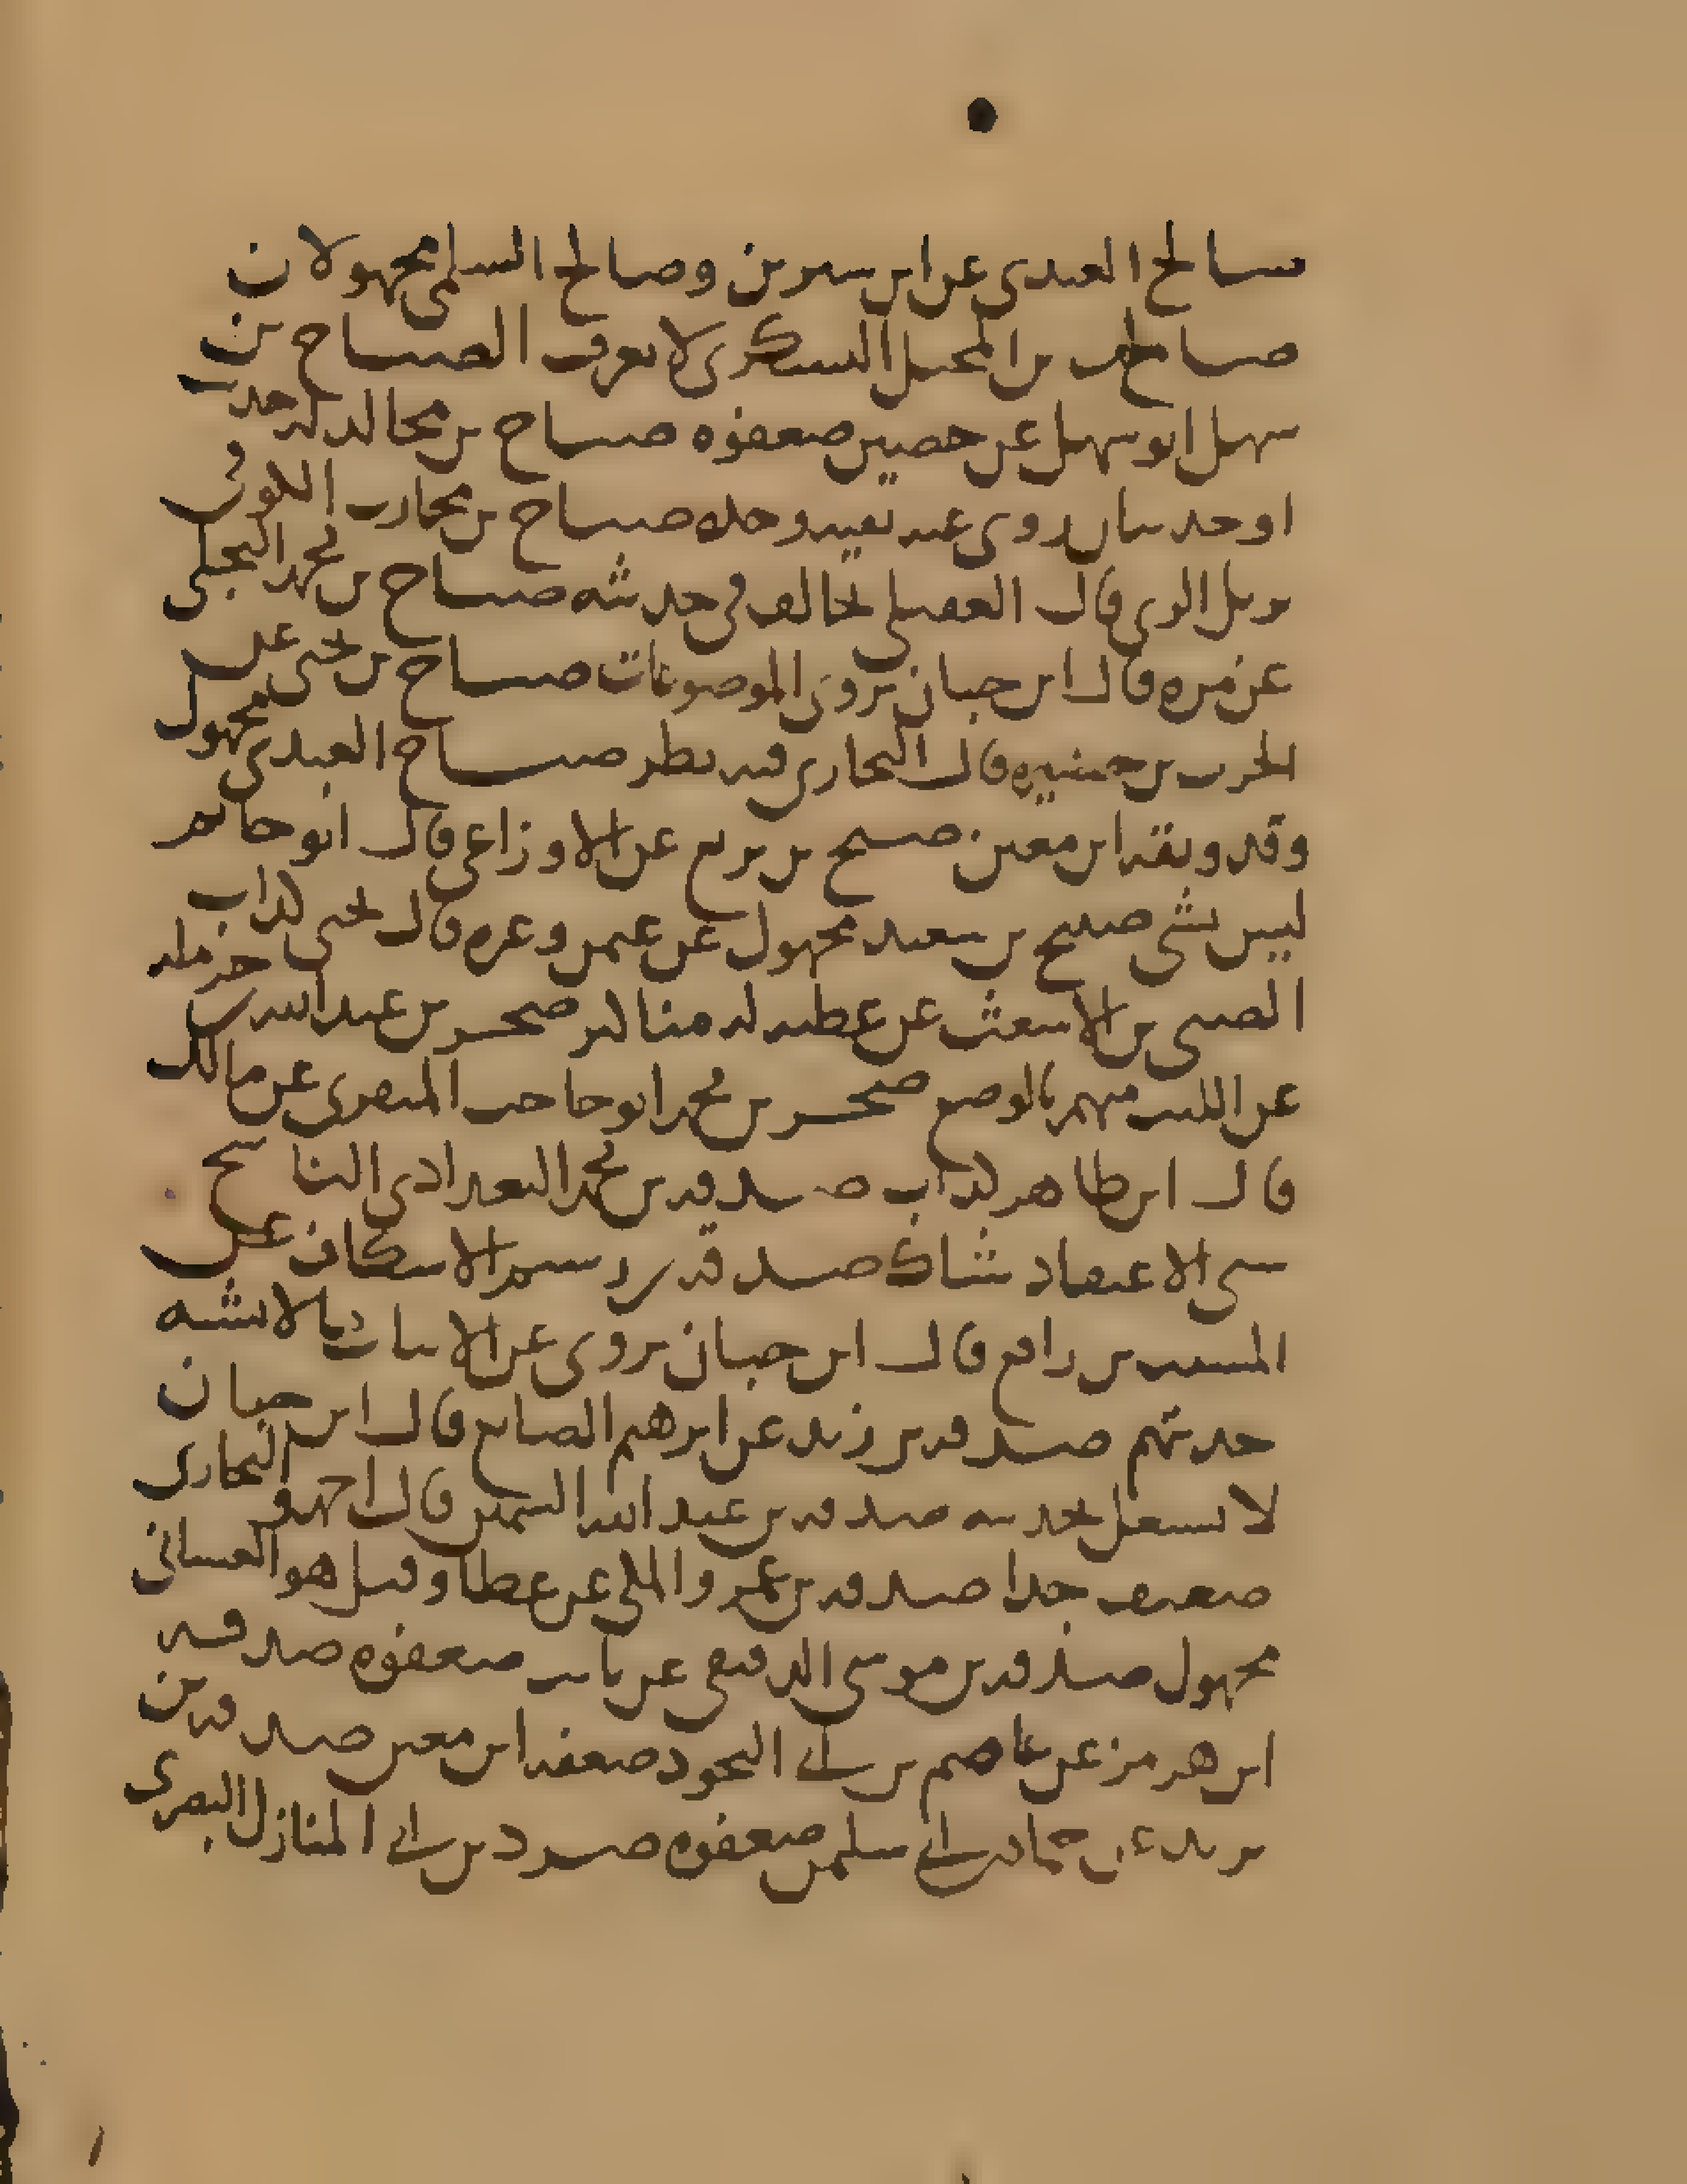 صالح العبدي عن ابن سيرين وصالح السلمي مجهولان
صالح بن السكري لا يعرف الصباح بن
سهل ابو سهل عن حصين ضعفوه صباح بن مجالد له حديث
او حديثان روى عنه بقية وحده صباح بن محارب الكوفي
نزيل الري قال العقيلي يخالف في حديثه صباح بن محمد البجلي
عن مره قال ابن حبان يروى الموضوعات صباح بن يحيى عن
الحرث بن حصيره قال البخاري فيه نظر صباح العبدي مجهول
وقد وثقه ابن معين صبيح بن بزيع عن الاوزاعي قال ابو حاتم
ليس بشي صبيح بن سعيد مجهول عن عمر وغيره قال يحيى كذاب
الصبي بن الاشعث عن عطيه له مناكير صخر بن عبد الله بن حرمله
عن الليث متهم بالوضع صخر بن محمد ابو حاجب المنقري عن مالك
قال ابن طاهر كذاب صدقه بن محمد البغدادي الناسخ
سي الاعتقاد شاك صدقه بن رستم الاسكاف عن
المسيب بن رافع قال ابن حبان يروى عن الاثبات ما لا يشبه
حديثهم صدقه بن زيد عن ابرهيم الصايغ قال ابن حبان
لا يشتغل بحديثه صدقه بن عبد الله السمين قال احمد و البخاري
ضعيف جدا صدقه بن عمرو المكي عن عطا وقيل هو الغساني
مجهول صدقه بن موسى الدقيقي عن ثابت ضعفوه صدقه
ابن هرمز عن عاصم بن ابي النجود ضعفه ابن معين صدقه بن
يزيد عن حماد بن ابي سليمن ضعفوه صرد بن ابي المنازل البصري